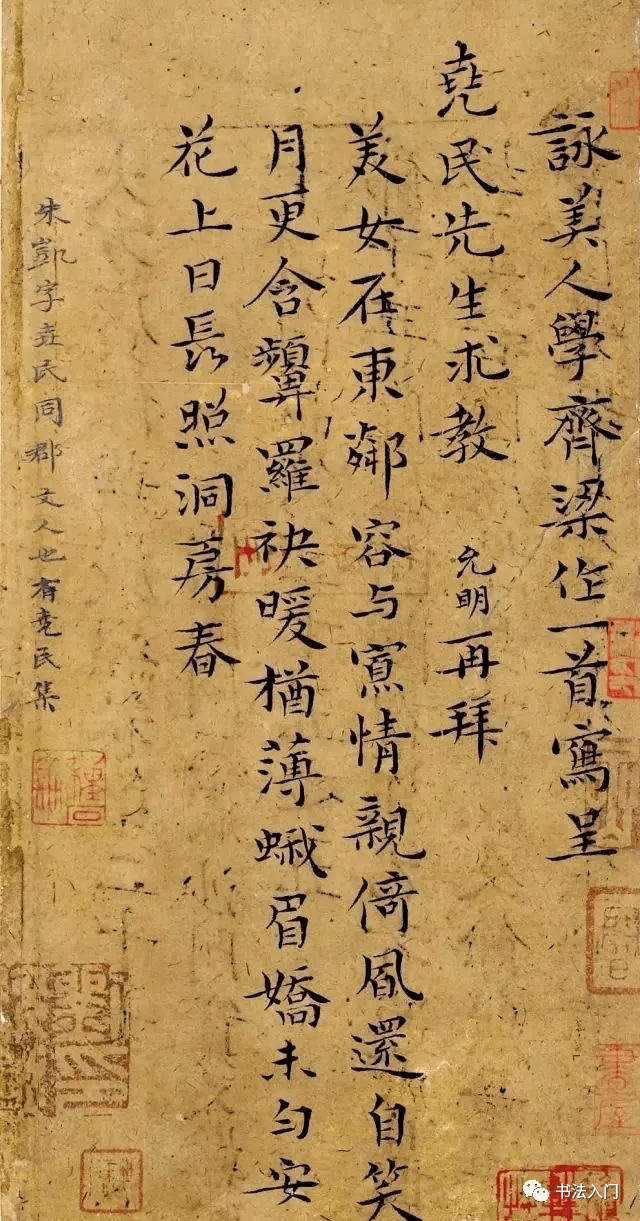 詠美人學齊梁作一首寫呈
堯民先生求教 允明再拜
美女在東鄰容与情親倚風還自笑
月更含顰羅袂暖猶薄蛾眉嬌未勻安
花上日長照洞房春
朱凱字堯民同郡文人也有堯民集
书法入门